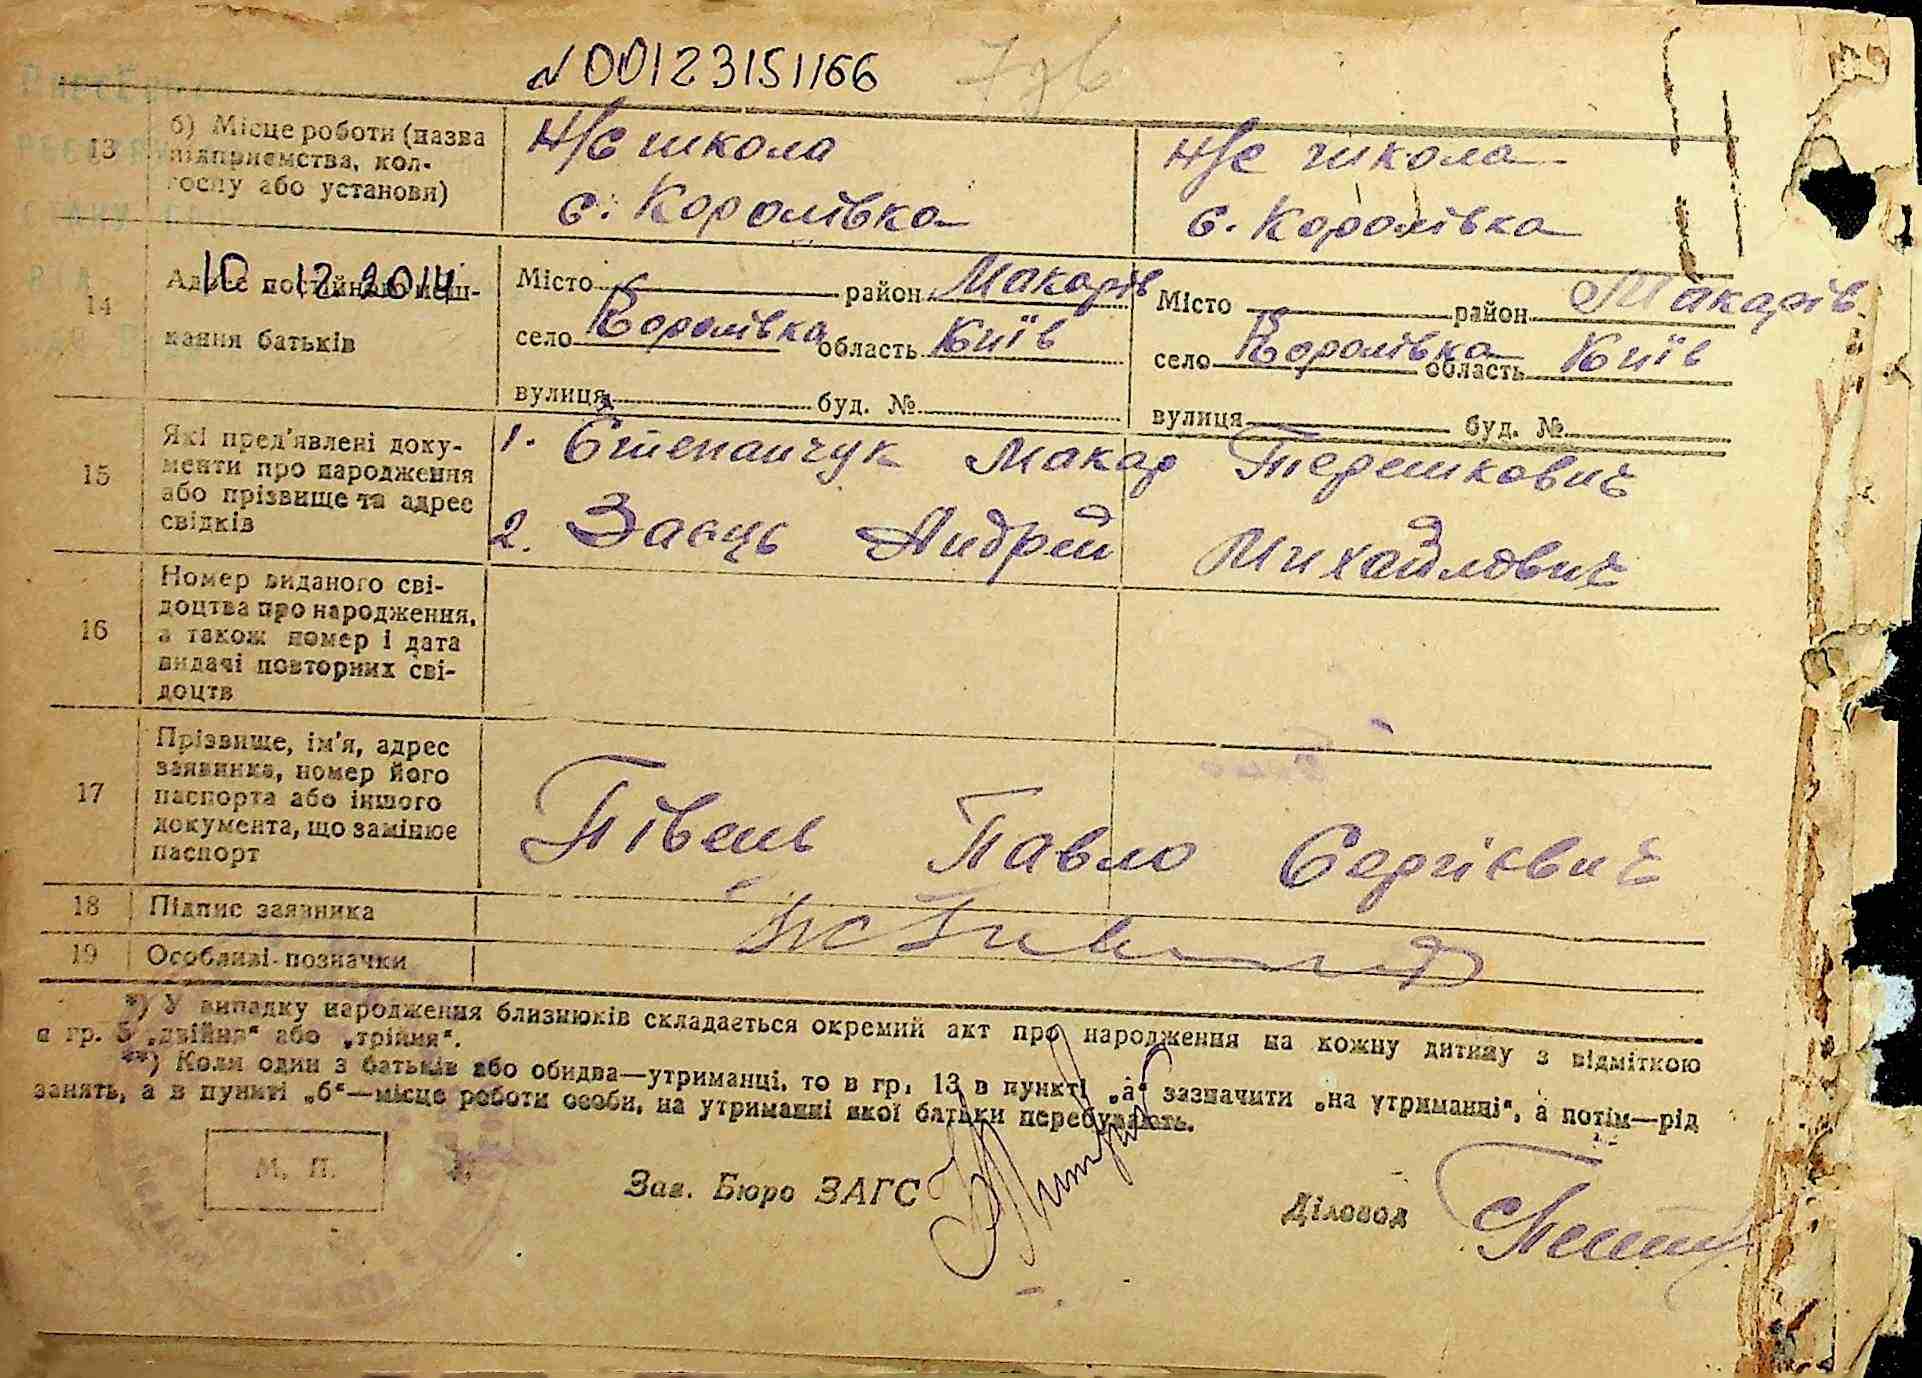 N00123151166
13 б) Місце роботи (назва підприємства, колгоспу або установи)
Н/С школа с. Королівка
Н/С школа с. Королівка
10 12 2014
14 Адрес постійного мешкання батьків
Місто район Макарів
село Королівка область Київ
вулиця буд. №
Місто район Макарів
село Королівка область Київ
вулиця буд. №
15 Які пред'явлені документи про народження або прізвище та адрес свідків
1. Степанчук Макар Терешкович
2. Заєць Андрей Михайлович
16 Номер виданого свідоцтва про народження, а також номер і дата видачі повторних свідоцтв
17 Прізвище, ім'я, адрес заявника, номер його паспорта або іншого документа, що замінює паспорт
Півень Павло Сергієвич
18 Підпис заявника
19 Особливі позначки
*) У випадку народження близнюків складається окремий акт про народження на кожну дитину з відміткою
в гр. 5 „двійня“ або „трійня“.
**) Коли один з батьків або обидва—утриманці, то в гр. 13 в пункті „а“ зазначити „на утриманні“, а потім—рід
занять, а в пункті „б“—місце роботи особи, на утриманні якої батьки перебувають.
М. П.
Зав. Бюро ЗАГС
Діловод